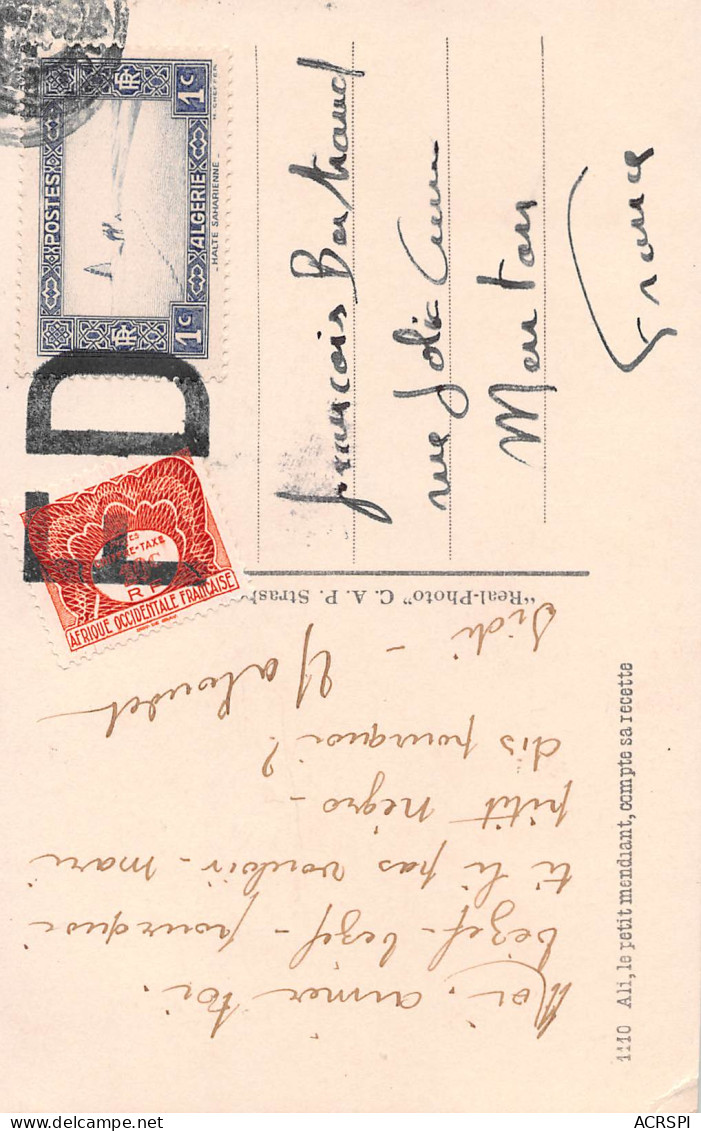 1110 Ali, le petit mendiant, compte sa recette
Moi. aimer toi.
bézef - bezef - pourquoi
ti li pas vouloir - mari
pitit négro -
dis pourquoi ?
Sidi -
"Real-Photo" C. A. P. Strasb
POSTES
RF
1c
1c
ALGERIE
HALTE SAHARIENNE
T D
TAXE
RF
AFRIQUE OCCIDENTALE FRANÇAISE
François Bertrand
rue
Menton
France
ACRSPI